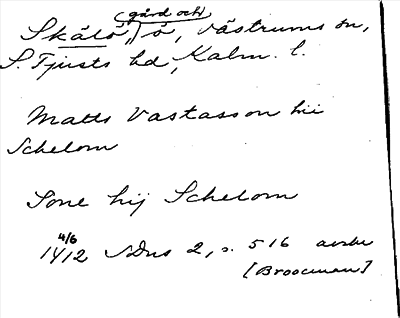 gård och
Skälö, ö, Västrums sn,
S. Tjusts hd, Kalm. l.
Matts Vastasson hii
Schelom
Sone hij Schelom
4/6
1412 SDns 2, s. 516 avskr
[Broocman]